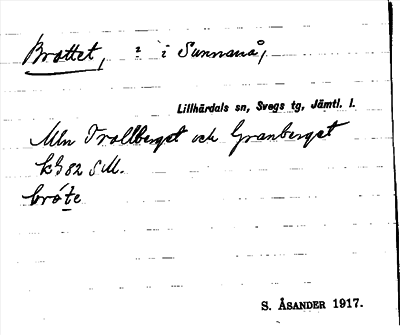 Brottet, : i Sunnanå,
Lillhärdals sn, Svegs tg, Jämtl. l.
Mln Trollberget och Granberget
82 S M.
bróte
S. ÅSANDER 1917.